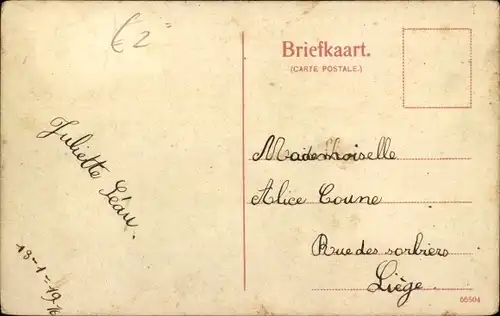 € 2
Briefkaart.
(CARTE POSTALE.)
Juliette Léau.
13-1-1916
Mademoiselle
Alice Coune
Rue des sorbiers
Liège.
66504